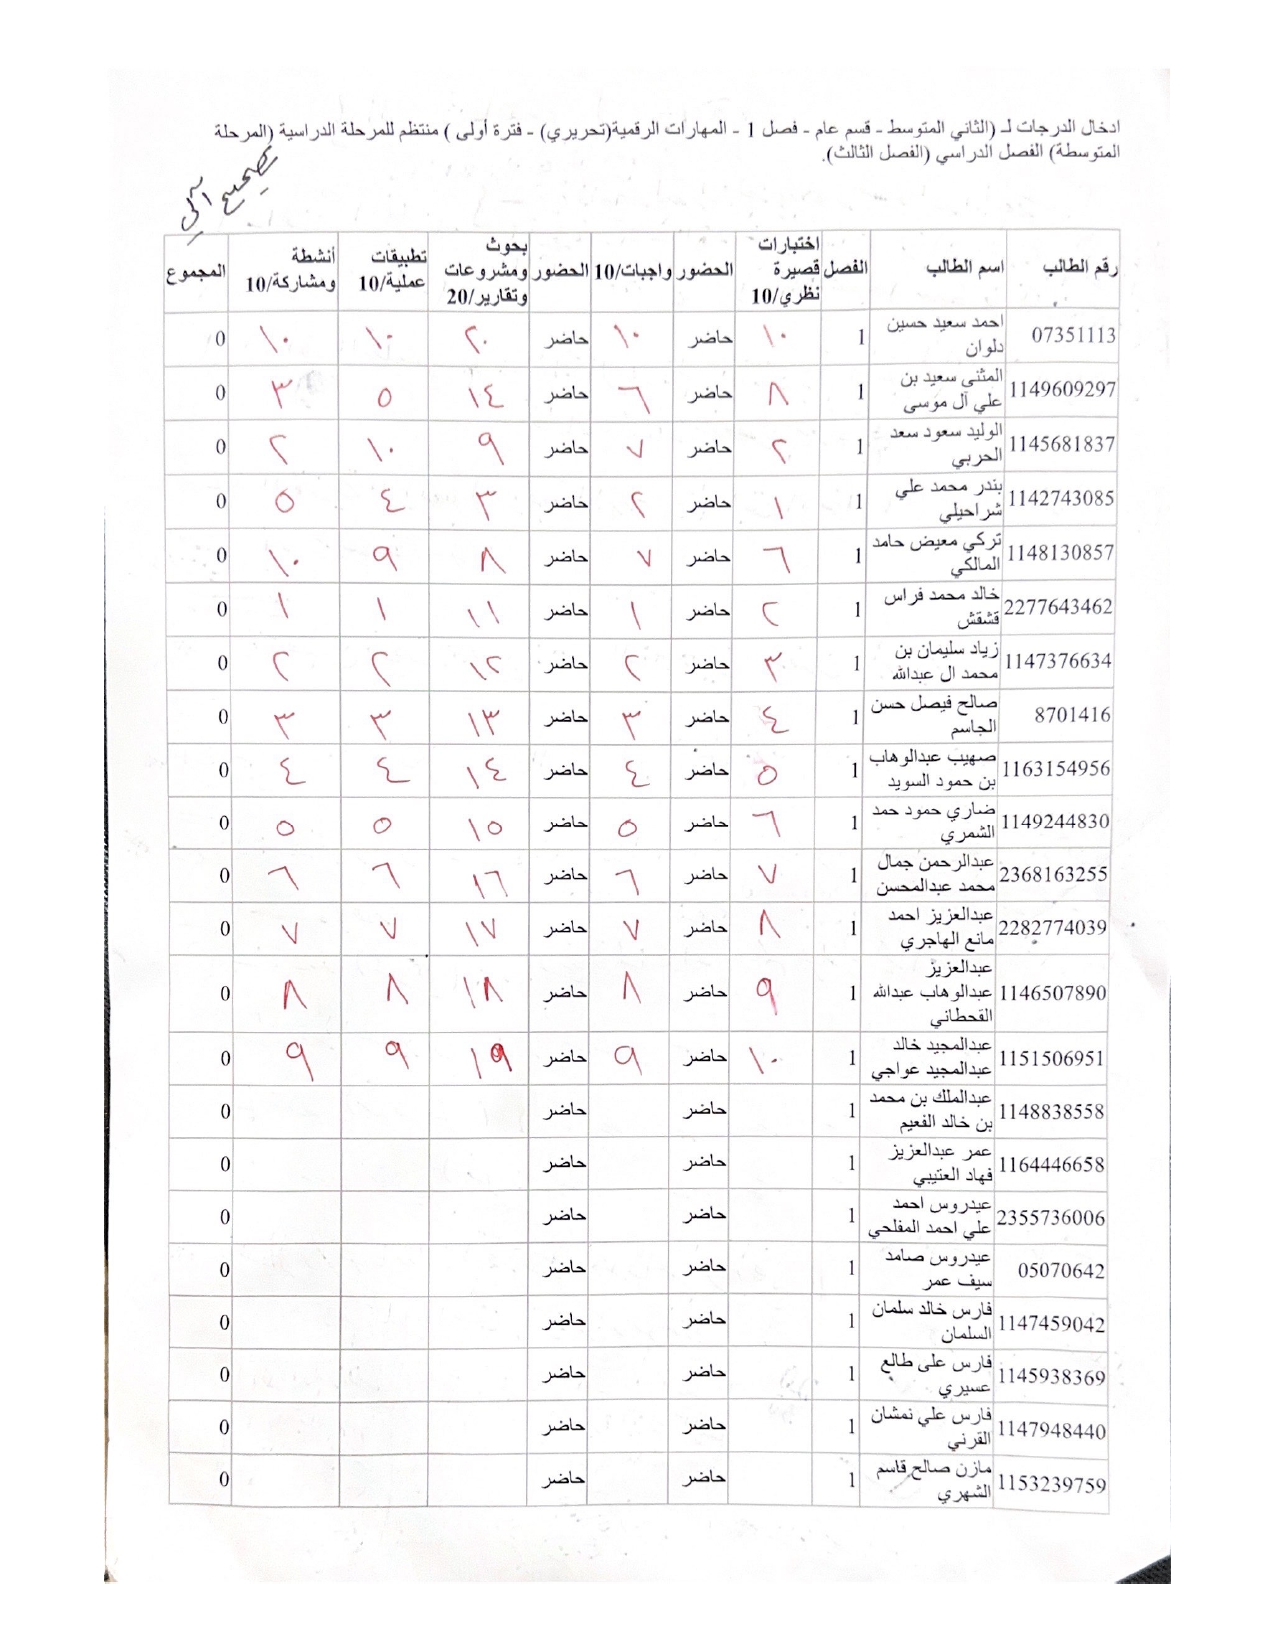 ادخال الدرجات لـ (الثاني المتوسط - قسم عام - فصل 1 - المهارات الرقمية(تحريري) - فترة أولى ) منتظم للمرحلة الدراسية (المرحلة
المتوسطة) الفصل الدراسي (الفصل الثالث).
تصحيح آلي
رقم الطالب اسم الطالب الفصل اختبارات قصيرة نظري/10 الحضور واجبات/10 الحضور بحوث ومشروعات وتقارير/20 تطبيقات عملية/10 أنشطة ومشاركة/10 المجموع
07351113 احمد سعيد حسين دلوان 1 ١٠ حاضر ١٠ حاضر ٢٠ ١٠ ١٠ 0
1149609297 المثنى سعيد بن علي آل موسى 1 ٨ حاضر ٦ حاضر ١٤ ٥ ٣ 0
1145681837 الوليد سعود سعد الحربي 1 ٢ حاضر ٧ حاضر ٩ ١٠ ٢ 0
1142743085 بندر محمد علي شراحيلي 1 ١ حاضر ٢ حاضر ٣ ٤ ٥ 0
1148130857 تركي معيض حامد المالكي 1 ٦ حاضر ٧ حاضر ٨ ٩ ١٠ 0
2277643462 خالد محمد فراس قشقش 1 ٢ حاضر ١ حاضر ١١ ١ ١ 0
1147376634 زياد سليمان بن محمد ال عبدالله 1 ٣ حاضر ٢ حاضر ١٢ ٢ ٢ 0
8701416 صالح فيصل حسن الجاسم 1 ٤ حاضر ٣ حاضر ١٣ ٣ ٣ 0
1163154956 صهيب عبدالوهاب بن حمود السويد 1 ٥ حاضر ٤ حاضر ١٤ ٤ ٤ 0
1149244830 ضاري حمود حمد الشمري 1 ٦ حاضر ٥ حاضر ١٥ ٥ ٥ 0
2368163255 عبدالرحمن جمال محمد عبدالمحسن 1 ٧ حاضر ٦ حاضر ١٦ ٦ ٦ 0
2282774039 عبدالعزيز احمد مانع الهاجري 1 ٨ حاضر ٧ حاضر ١٧ ٧ ٧ 0
1146507890 عبدالعزيز عبدالوهاب عبدالله القحطاني 1 ٩ حاضر ٨ حاضر ١٨ ٨ ٨ 0
1151506951 عبدالمجيد خالد عبدالمجيد عواجي 1 ١٠ حاضر ٩ حاضر ١٩ ٩ ٩ 0
1148838558 عبدالملك بن محمد بن خالد الفعيم 1 حاضر حاضر 0
1164446658 عمر عبدالعزيز فهاد العتيبي 1 حاضر حاضر 0
2355736006 عيدروس احمد علي احمد المفلحي 1 حاضر حاضر 0
05070642 عيدروس صامد سيف عمر 1 حاضر حاضر 0
1147459042 فارس خالد سلمان السلمان 1 حاضر حاضر 0
1145938369 فارس على طالع عسيري 1 حاضر حاضر 0
1147948440 فارس علي نمشان القرني 1 حاضر حاضر 0
1153239759 مازن صالح قاسم الشهري 1 حاضر حاضر 0